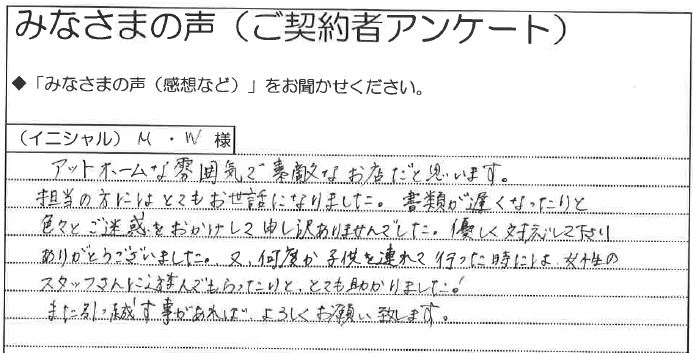 みなさまの声（ご契約者アンケート）
◆「みなさまの声（感想など）」をお聞かせください。
（イニシャル） M ・ W 様
アットホームな雰囲気で素敵なお店だと思います。
担当の方にはとてもお世話になりました。書類が遅くなったりと
色々とご迷惑をおかけして申し訳ありませんでした。優しく対応して下さり
ありがとうございました。又、何度か子供を連れて行った時には女性の
スタッフさんに遊んでもらったりと、とても助かりました！
また引っ越す事があればよろしくお願い致します。